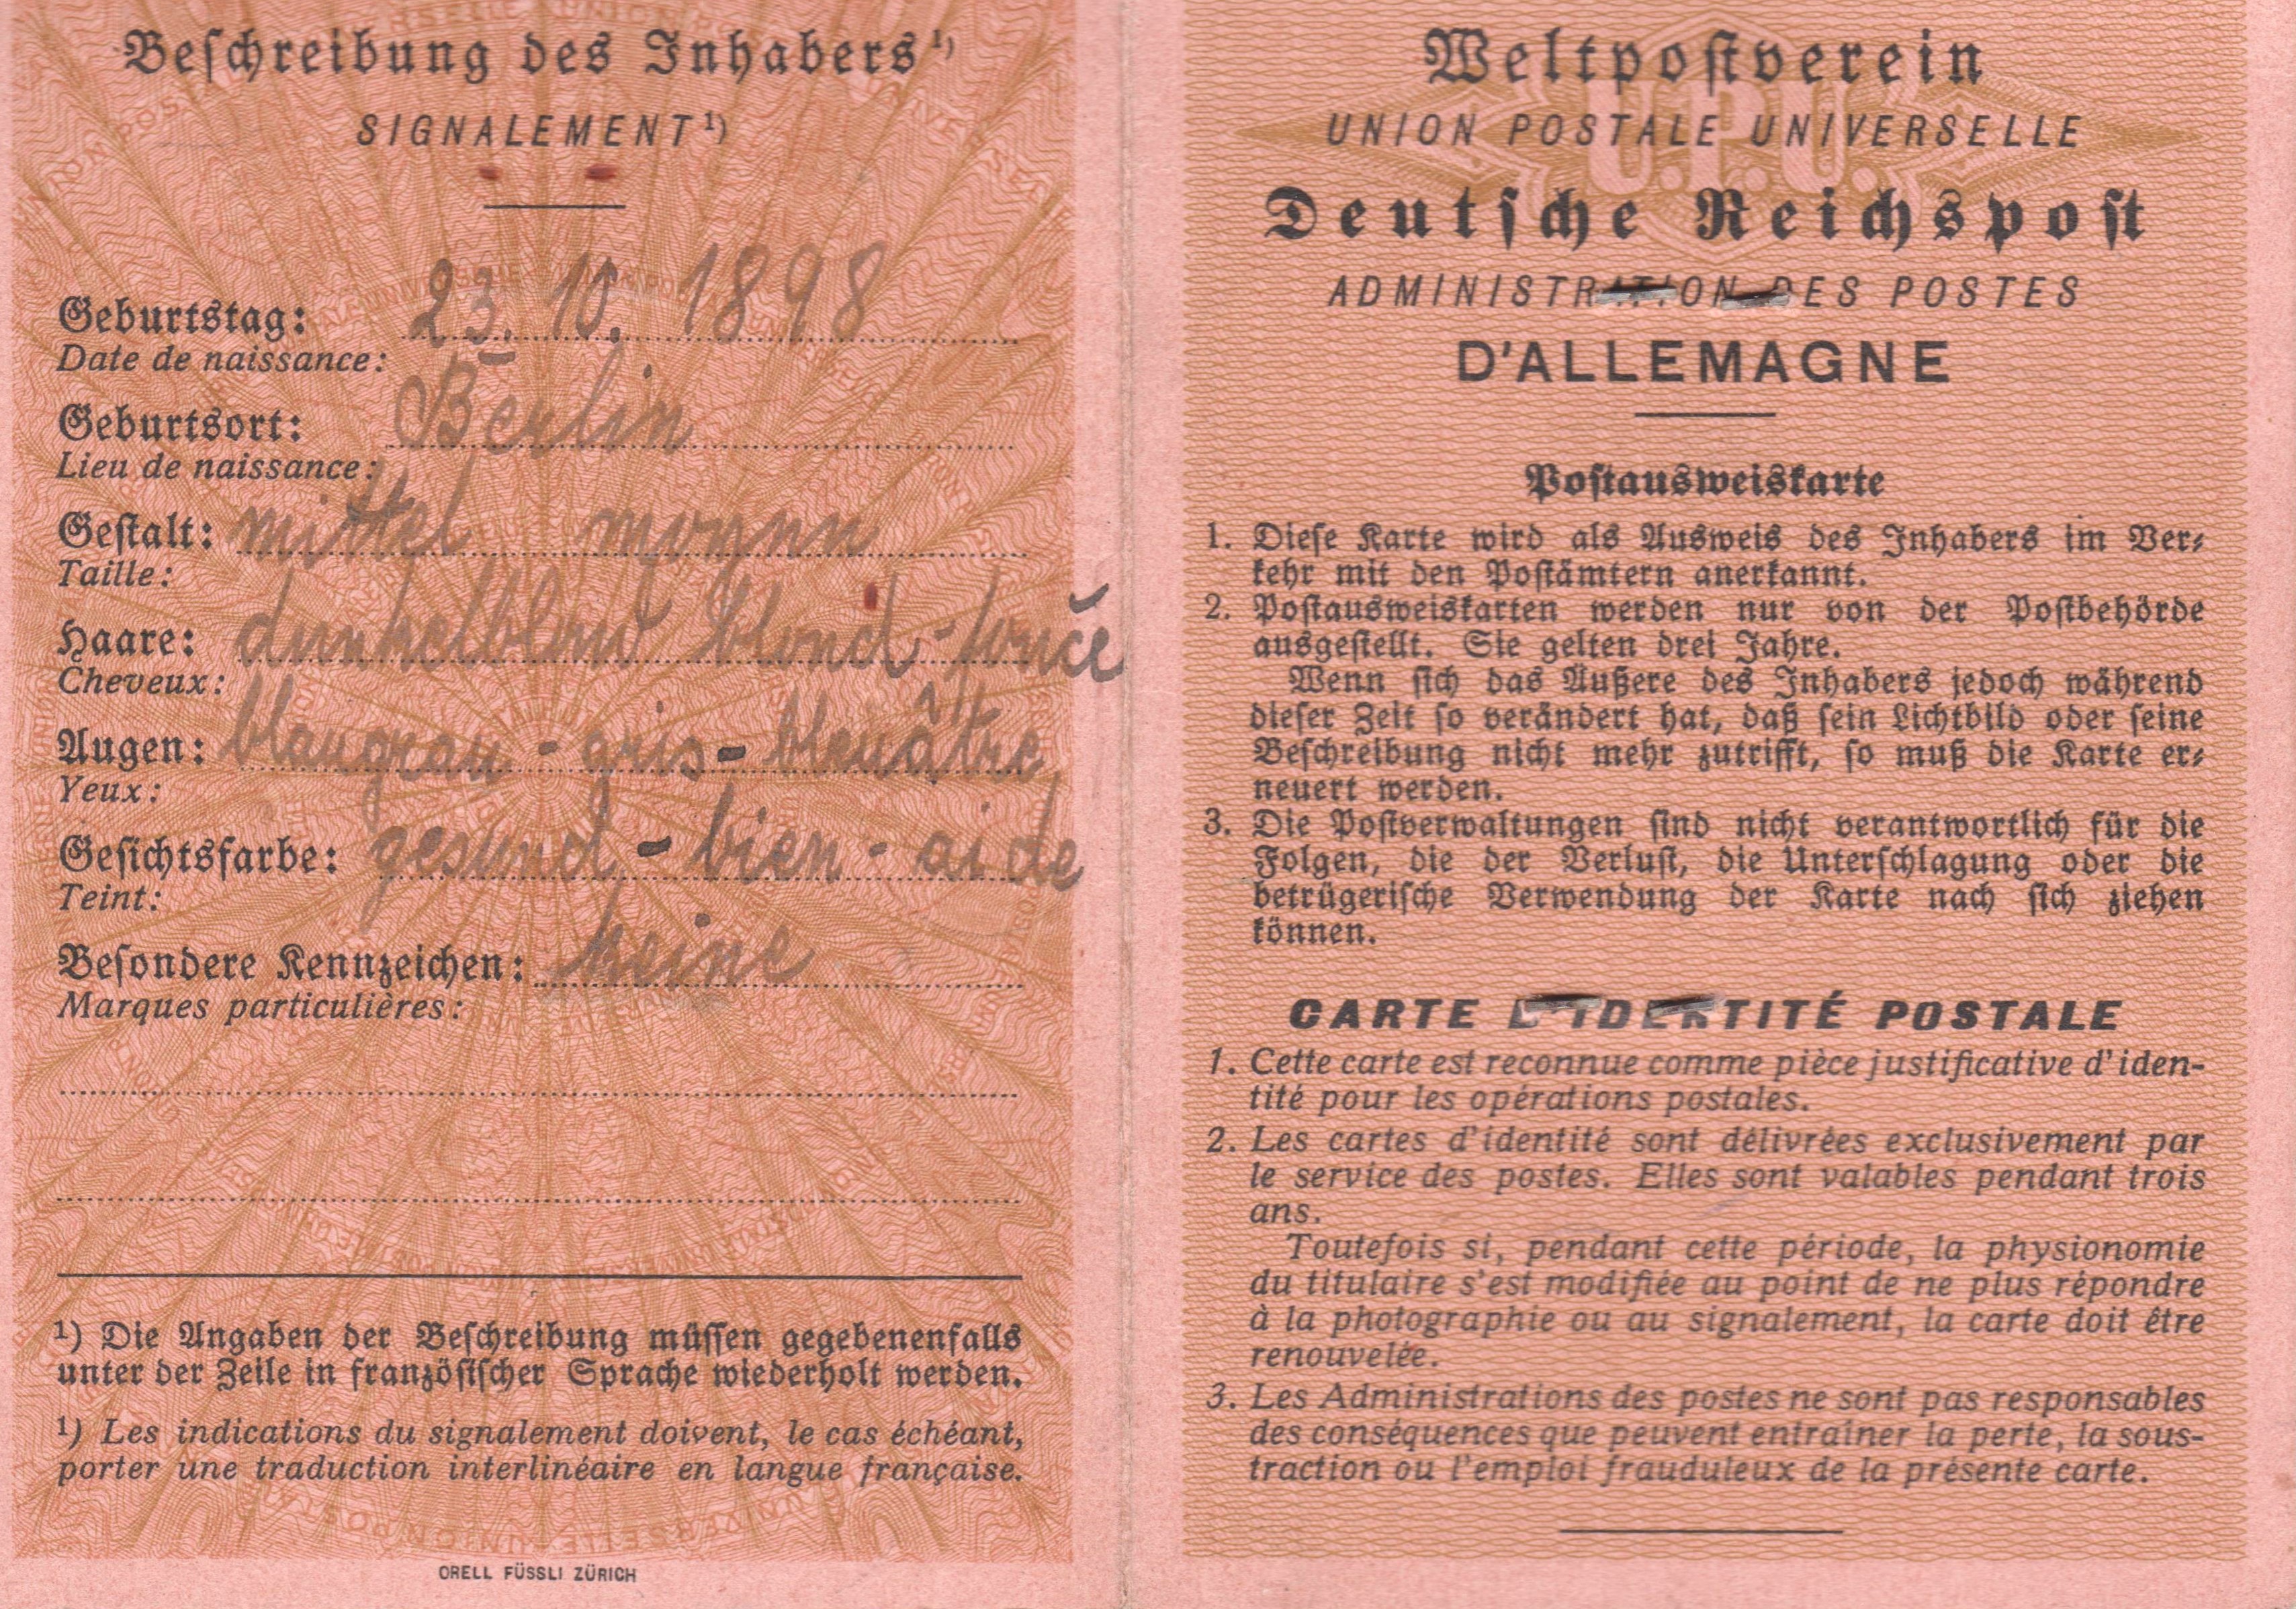 Beschreibung des Inhabers ¹)
SIGNALEMENT ¹)
Geburtstag: 23. 10. 1898
Date de naissance:
Geburtsort: Berlin
Lieu de naissance:
Gestalt: mittel
Taille:
Haare: blond - foncé
Cheveux:
Augen: blaugrau - gris - bleuâtre
Yeux:
Gesichtsfarbe: gesund - bien - aide
Teint:
Besondere Kennzeichen: keine
Marques particulières:
¹) Die Angaben der Beschreibung müssen gegebenenfalls
unter der Zeile in französischer Sprache wiederholt werden.
¹) Les indications du signalement doivent, le cas échéant,
porter une traduction interlinéaire en langue française.
ORELL FÜSSLI ZÜRICH
U.P.U.
Weltpostverein
UNION POSTALE UNIVERSELLE
Deutsche Reichspost
ADMINISTRATION DES POSTES
D'ALLEMAGNE
Postausweiskarte
1. Diese Karte wird als Ausweis des Inhabers im Ver-
kehr mit den Postämtern anerkannt.
2. Postausweiskarten werden nur von der Postbehörde
ausgestellt. Sie gelten drei Jahre.
Wenn sich das Äußere des Inhabers jedoch während
dieser Zeit so verändert hat, daß sein Lichtbild oder seine
Beschreibung nicht mehr zutrifft, so muß die Karte er-
neuert werden.
3. Die Postverwaltungen sind nicht verantwortlich für die
Folgen, die der Verlust, die Unterschlagung oder die
betrügerische Verwendung der Karte nach sich ziehen
können.
CARTE D'IDENTITÉ POSTALE
1. Cette carte est reconnue comme pièce justificative d'iden-
tité pour les opérations postales.
2. Les cartes d'identité sont délivrées exclusivement par
le service des postes. Elles sont valables pendant trois
ans.
Toutefois si, pendant cette période, la physionomie
du titulaire s'est modifiée au point de ne plus répondre
à la photographie ou au signalement, la carte doit être
renouvelée.
3. Les Administrations des postes ne sont pas responsables
des conséquences que peuvent entraîner la perte, la sous-
traction ou l'emploi frauduleux de la présente carte.